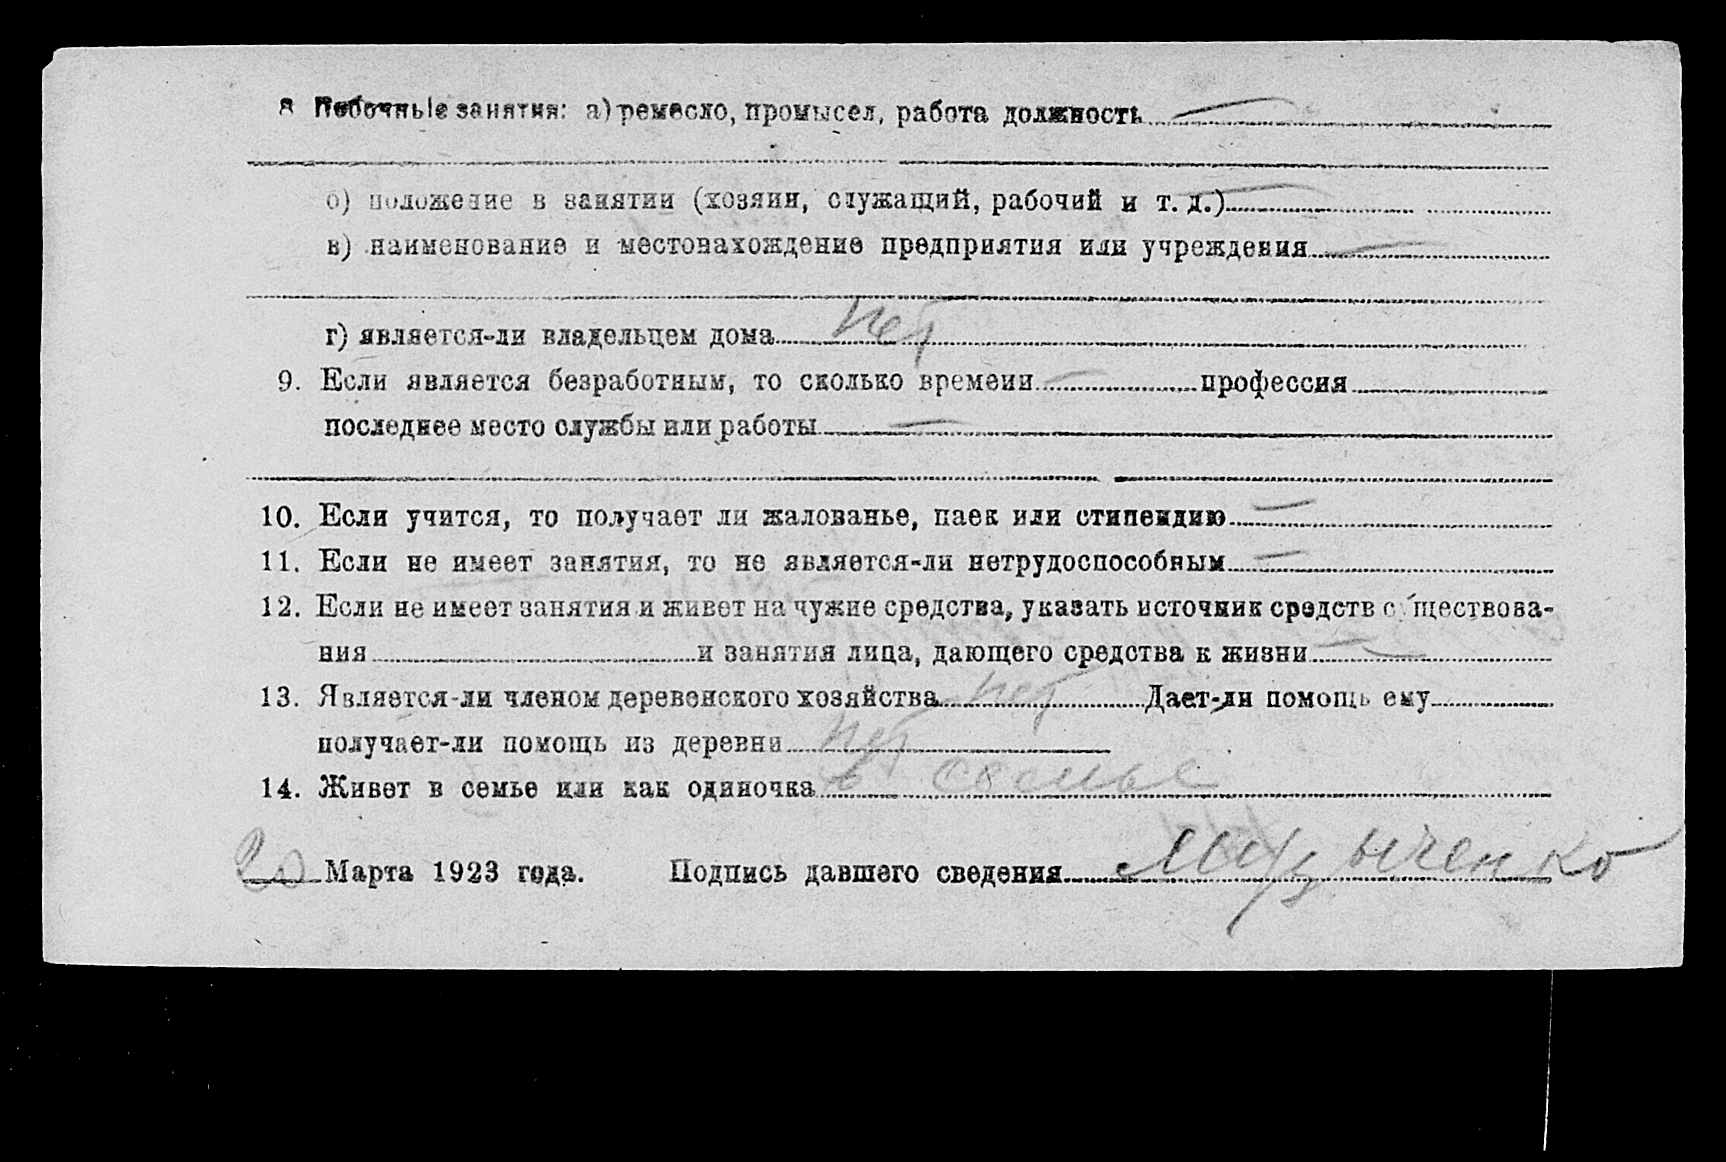 8 Побочные занятия: а) ремесло, промысел, работа должность —
б) положение в занятии (хозяин, служащий, рабочий и т. д.) —
в) наименование и местонахождение предприятия или учреждения —
г) является-ли владельцем дома нет
9. Если является безработным, то сколько времени — профессия
последнее место службы или работы —
10. Если учится, то получает ли жалованье, паек или стипендию —
11. Если не имеет занятия, то не является-ли нетрудоспособным —
12. Если не имеет занятия и живет на чужие средства, указать источник средств существова-
ния и занятия лица, дающего средства к жизни —
13. Является-ли членом деревенского хозяйства нет Дает-ли помощь ему
получает-ли помощь из деревни нет
14. Живет в семье или как одиночка в семье
20 Марта 1923 года. Подпись давшего сведения Музыченко